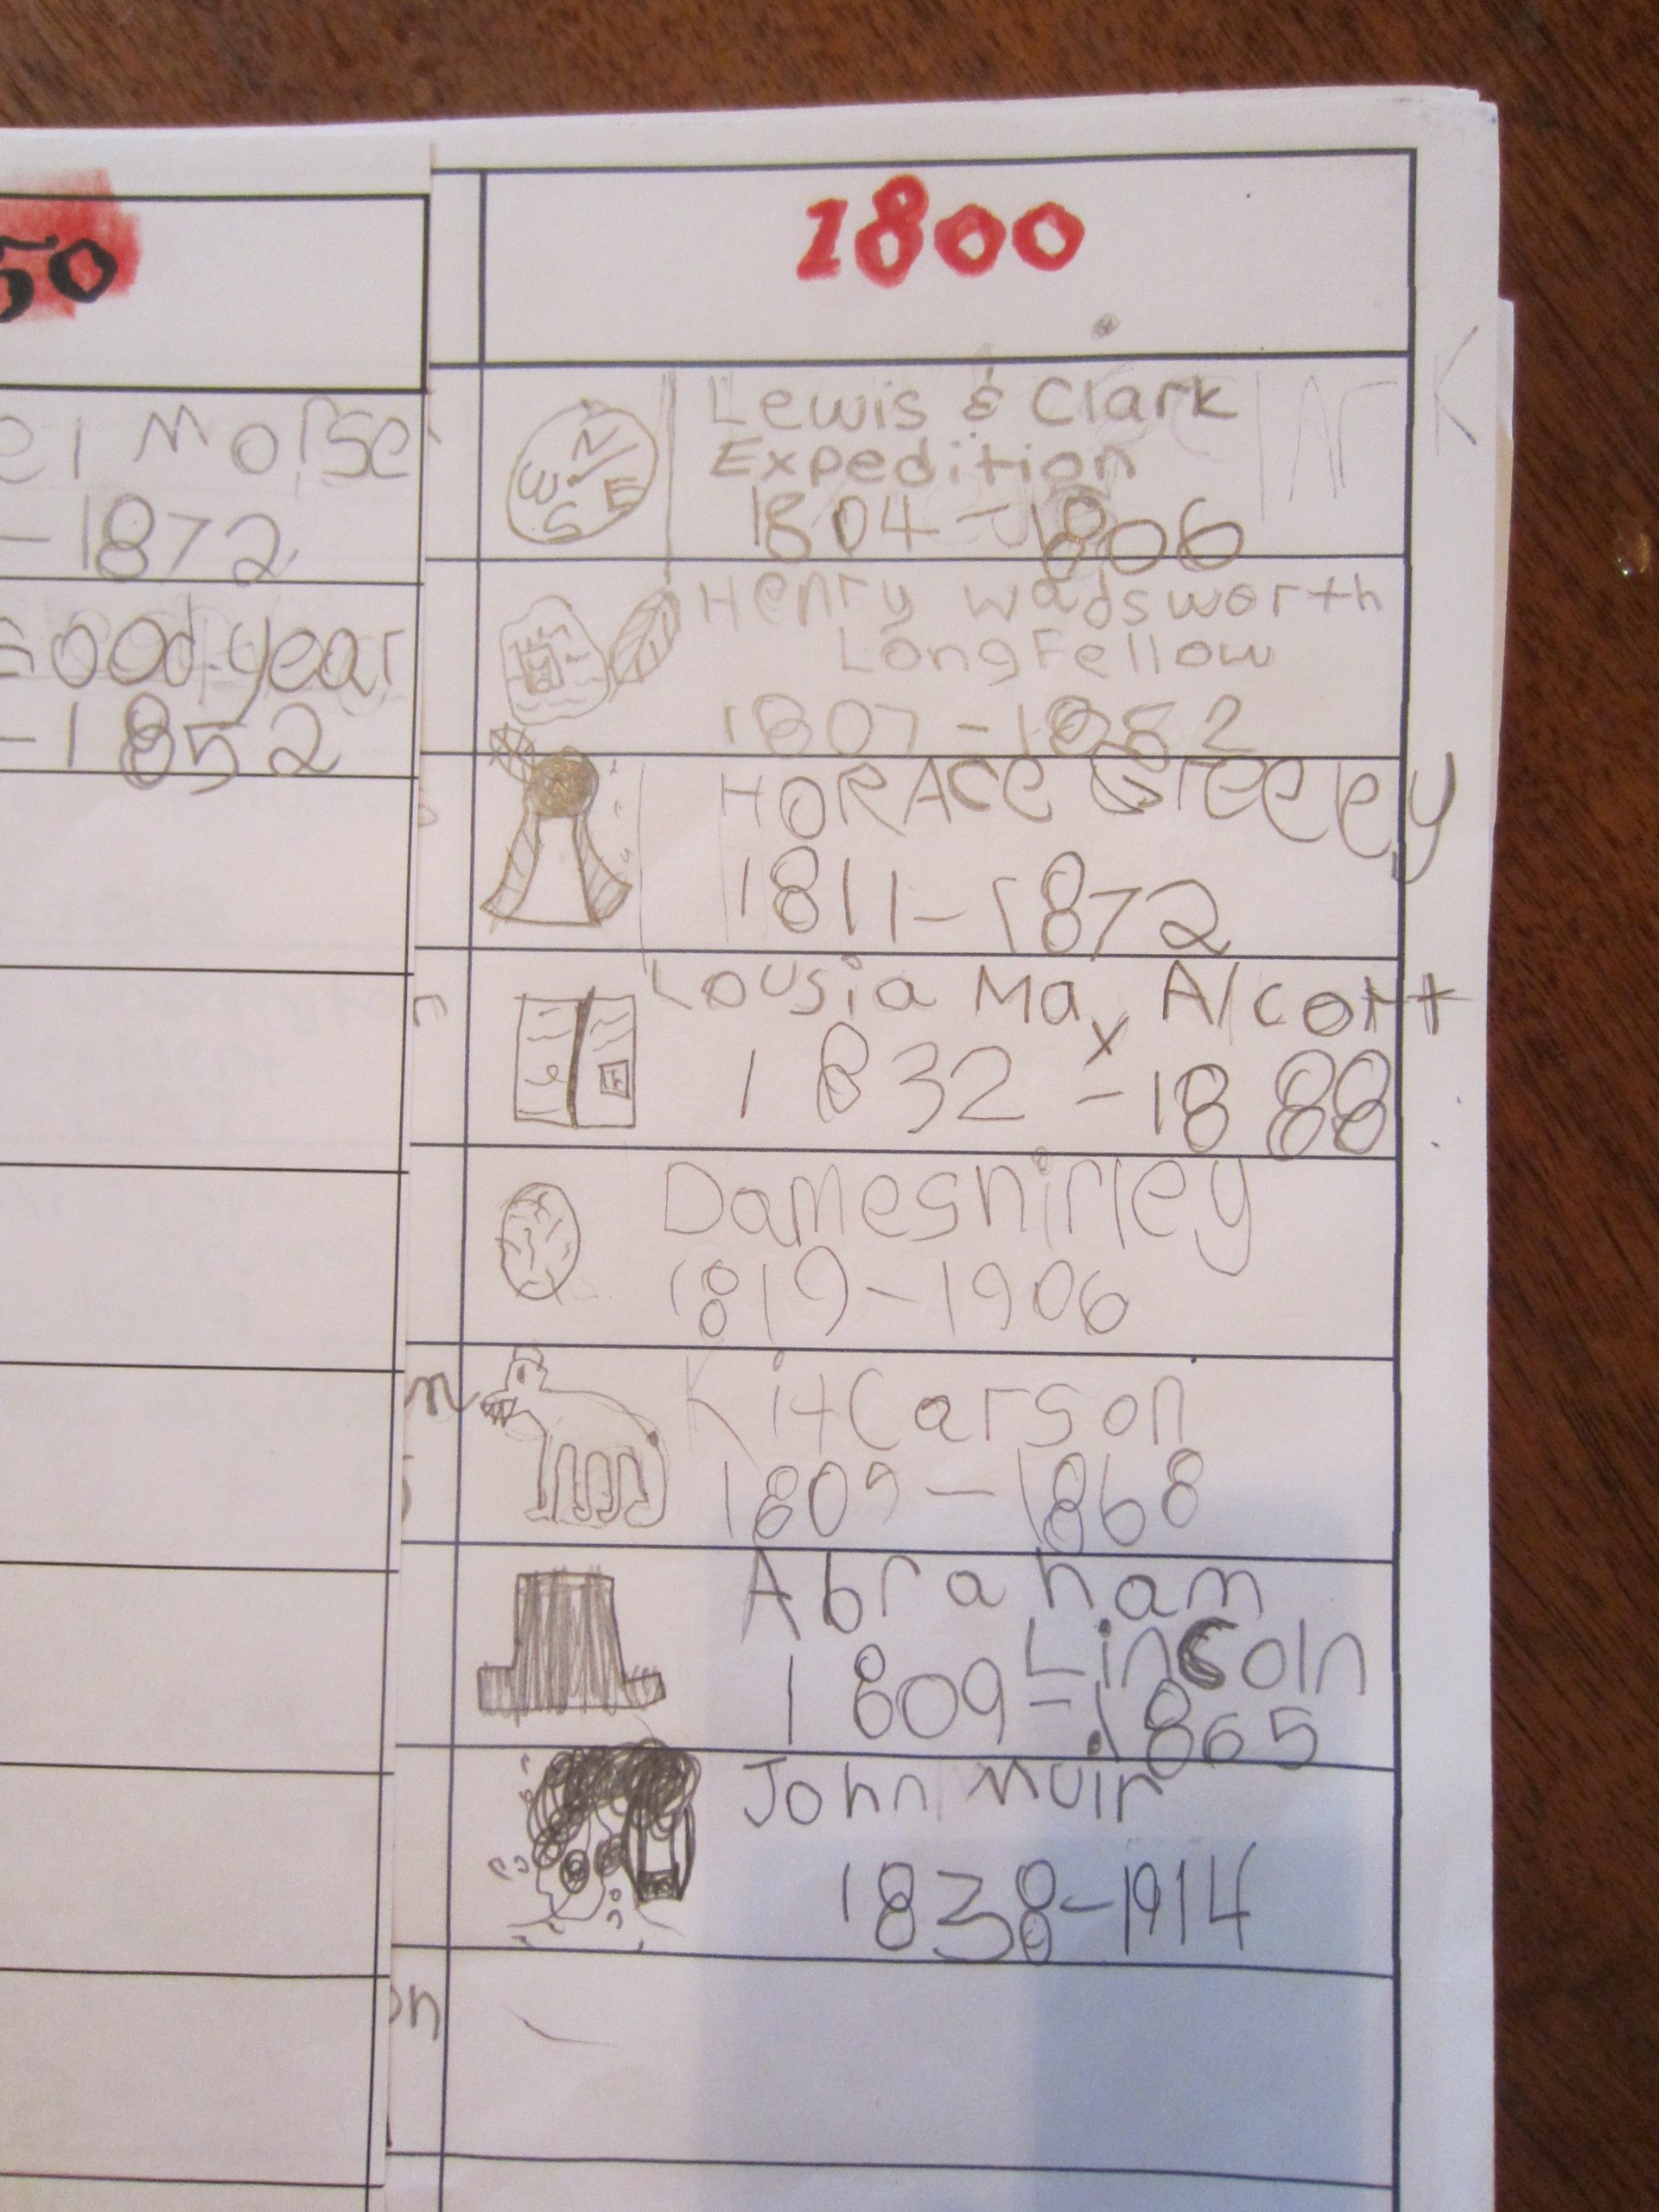 50
el Morse
-1872
Goodyear
-1852
1800
Lewis & Clark
Expedition
1804-1806
clark
N
W E
S
Henry Wadsworth
Longfellow
1807-1882
HORACe Greeley
1811-1872
Lousia May Alcott
1832-1888
Dameshirley
1819-1906
Kit Carson
1809-1868
Abraham
Lincoln
1809-1865
John Muir
1838-1914
m
on